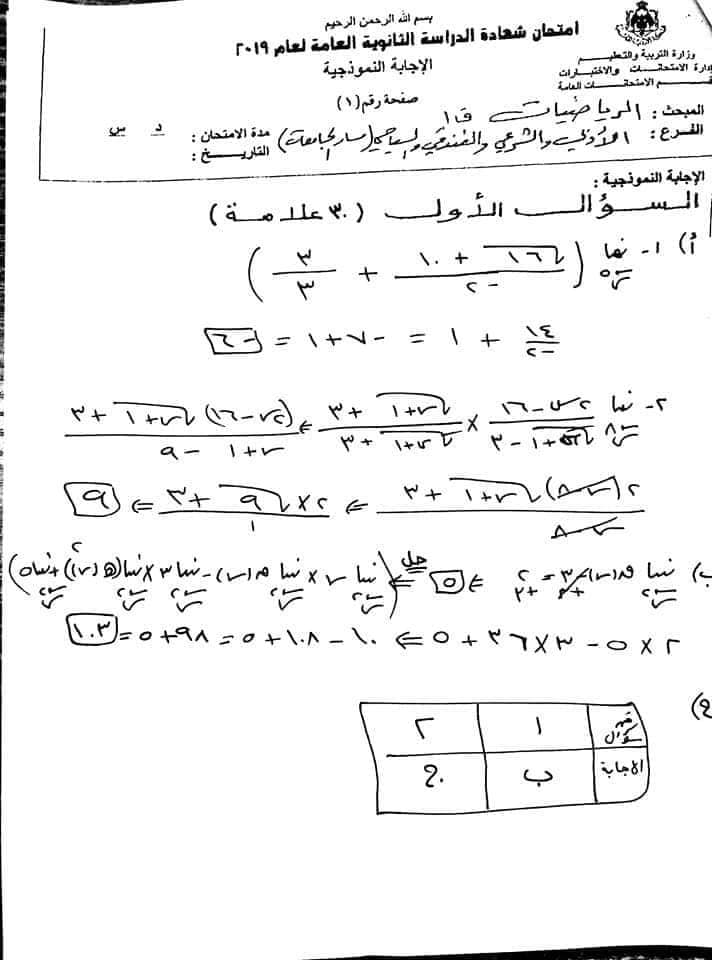 بسم الله الرحمن الرحيم
امتحان شهادة الدراسة الثانوية العامة لعام ٢٠١٩
الإجابة النموذجية
صفحة رقم (١)
وزارة التربية والتعليم
إدارة الامتحانات والاختبارات
قسم الامتحانات العامة
المبحث : الرياضيات ق١
الفرع : الأدبي والشرعي والفندقي والسياحي (مسار الجامعات)
مدة الامتحان : د س
التاريخ :
الإجابة النموذجية :
السؤال الأول (٣٠ علامة)
أ) ١- نها (√١٦ + ١٠ / -٢ + ٣ / ٣)
١٤ / -٢ + ١ = -٧ + ١ = -٦
٢- نها ٢س - ١٦ / √س+١ - ٣ × √س+١ + ٣ / √س+١ + ٣ ⇐ (٢س - ١٦) √س+١ + ٣ / س+١ - ٩
٢(س-٨) √س+١ + ٣ / س-٨ ⇐ ٢ × √٩ + ٣ / ١ ⇐ ٩
ب) نها
٢ × ٥ - ٣ × ٣٦ + ٥ ⇐ ١٠ - ١٠٨ + ٥ = ٩٨ + ٥ = ١٠٣
ج)
رقم السؤال ١ ٢
الاجابة ب ج